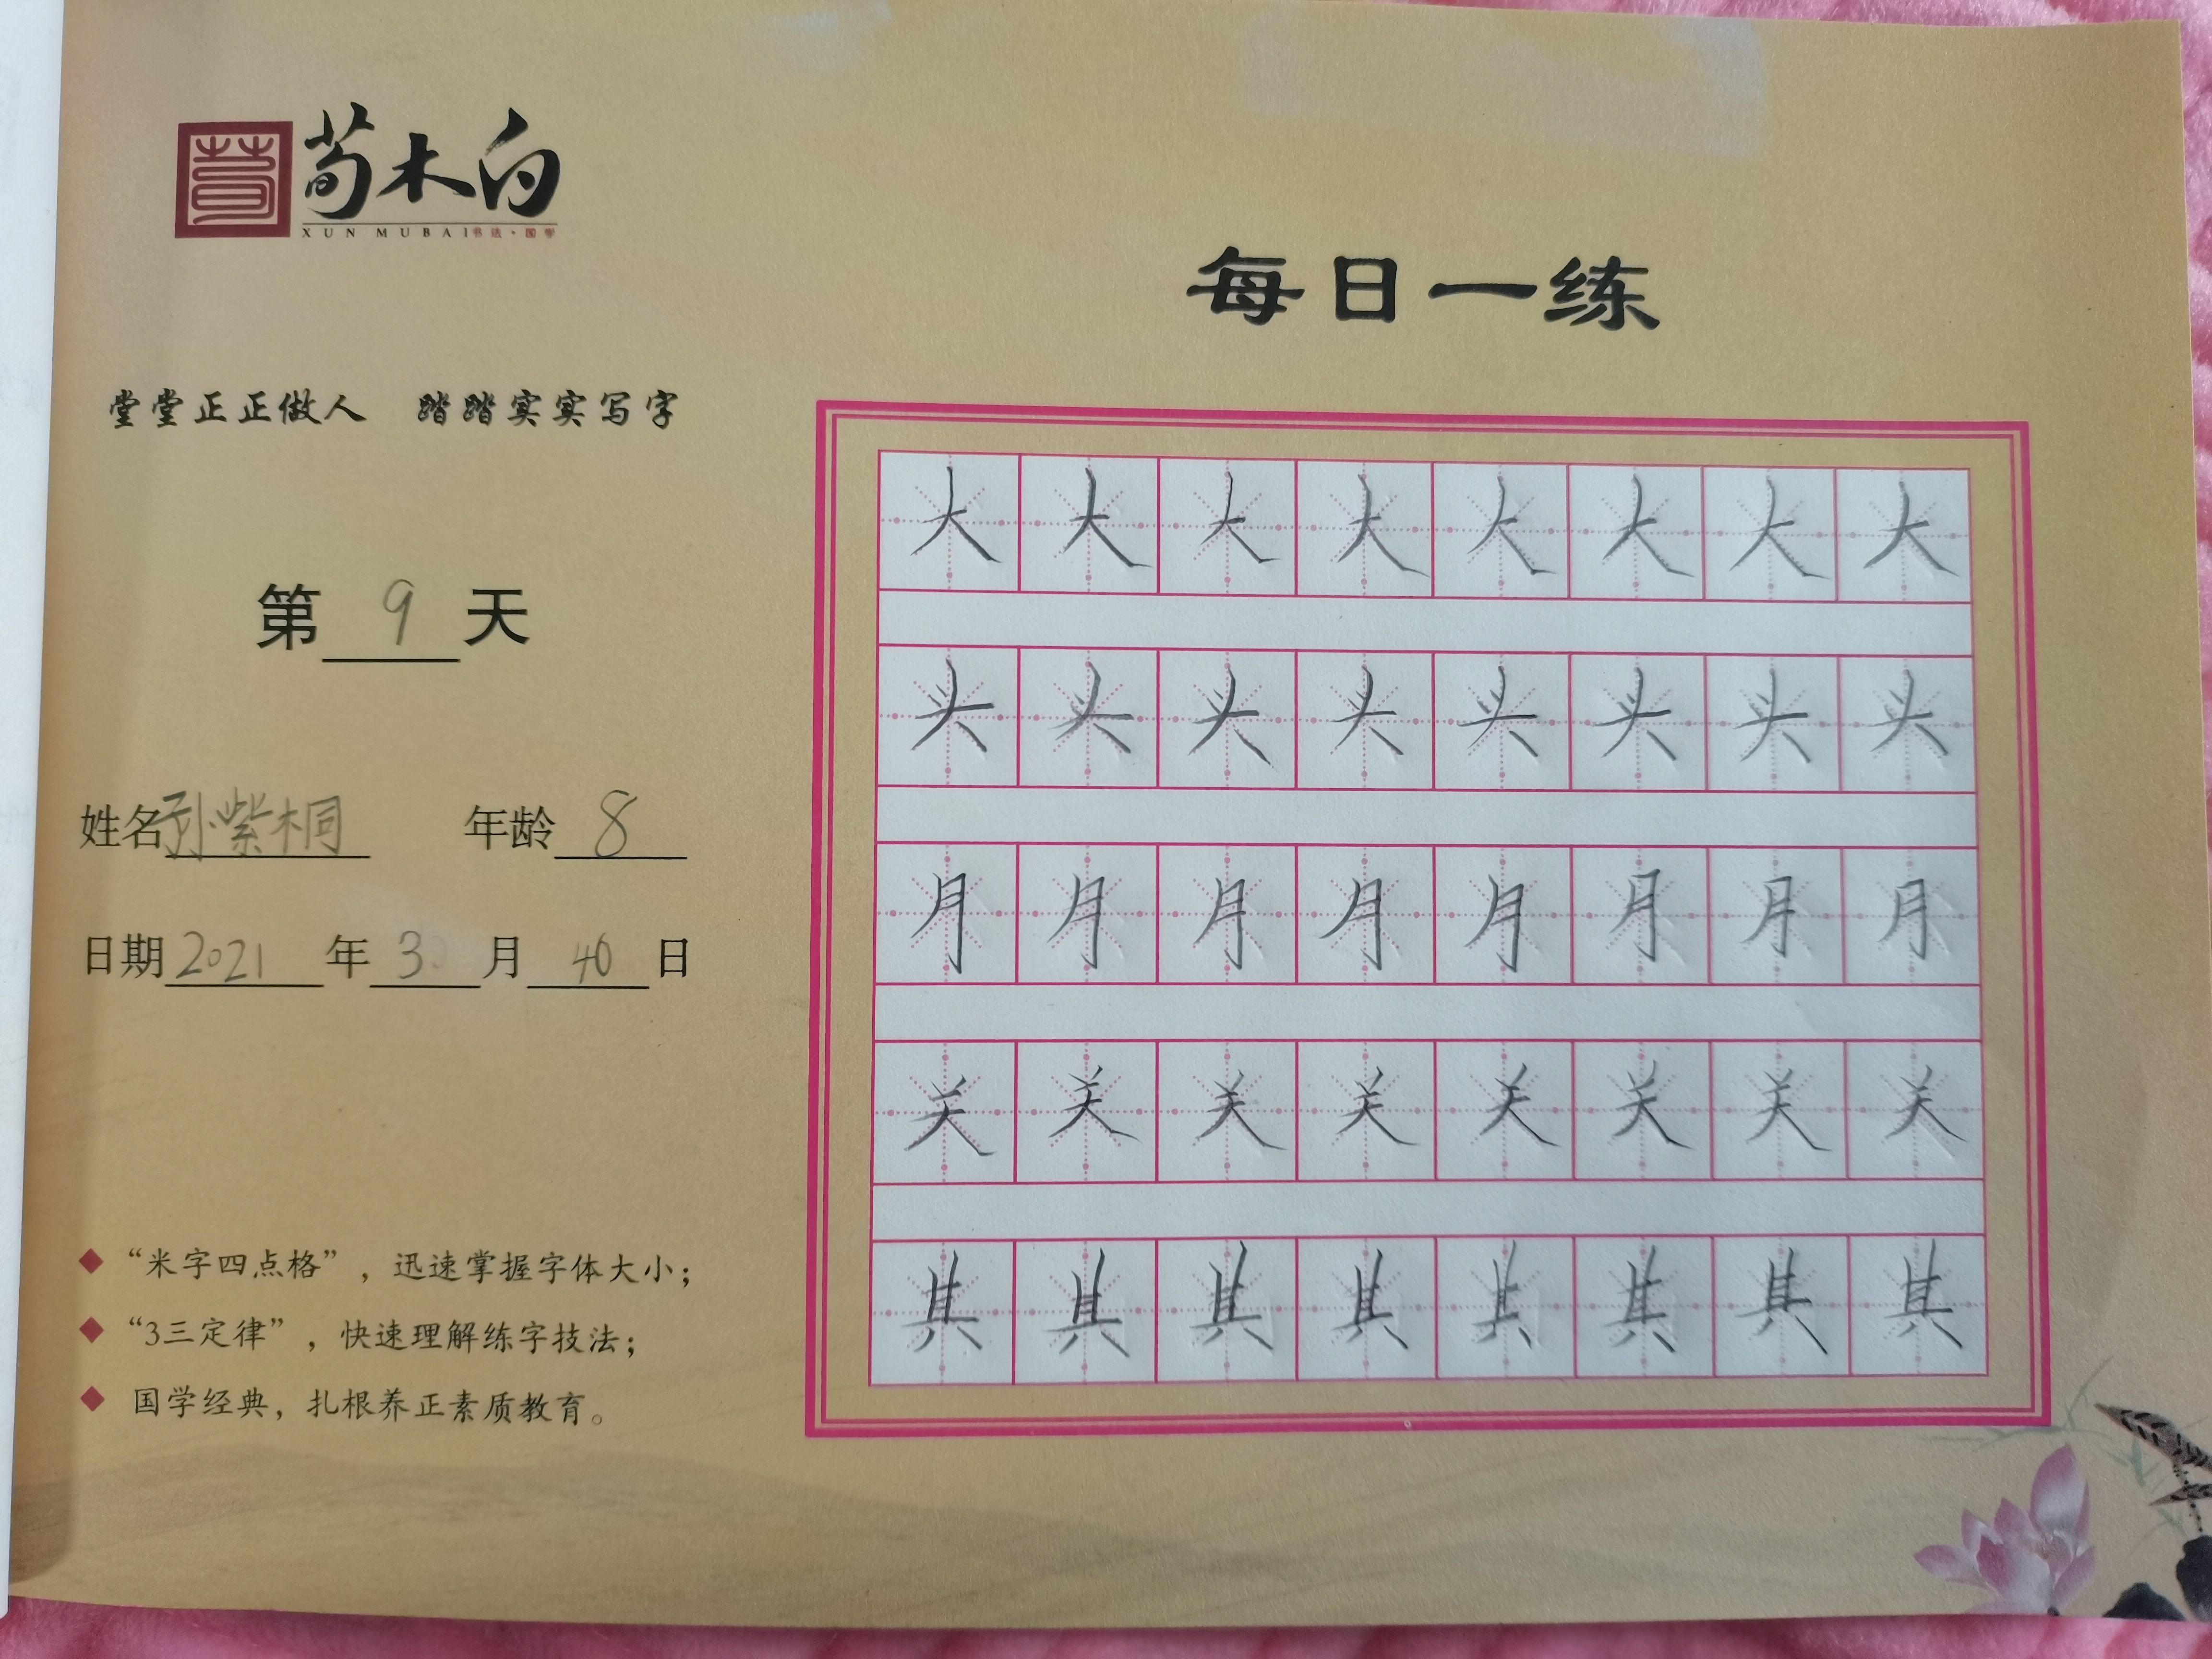 荀木白
XUN MUBAI书法·国学
每日一练
堂堂正正做人 踏踏实实写字
第 9 天
姓名孙紫桐 年龄 8
日期 2021 年 3 月 日
“米字四点格”，迅速掌握字体大小；
“3三定律”，快速理解练字技法；
国学经典，扎根养正素质教育。
大 大 大 大 大 大 大 大
头 头 头 头 头 头 头 头
月 月 月 月 月 月 月 月
关 关 关 关 关 关 关 关
其 其 其 其 其 其 其 其